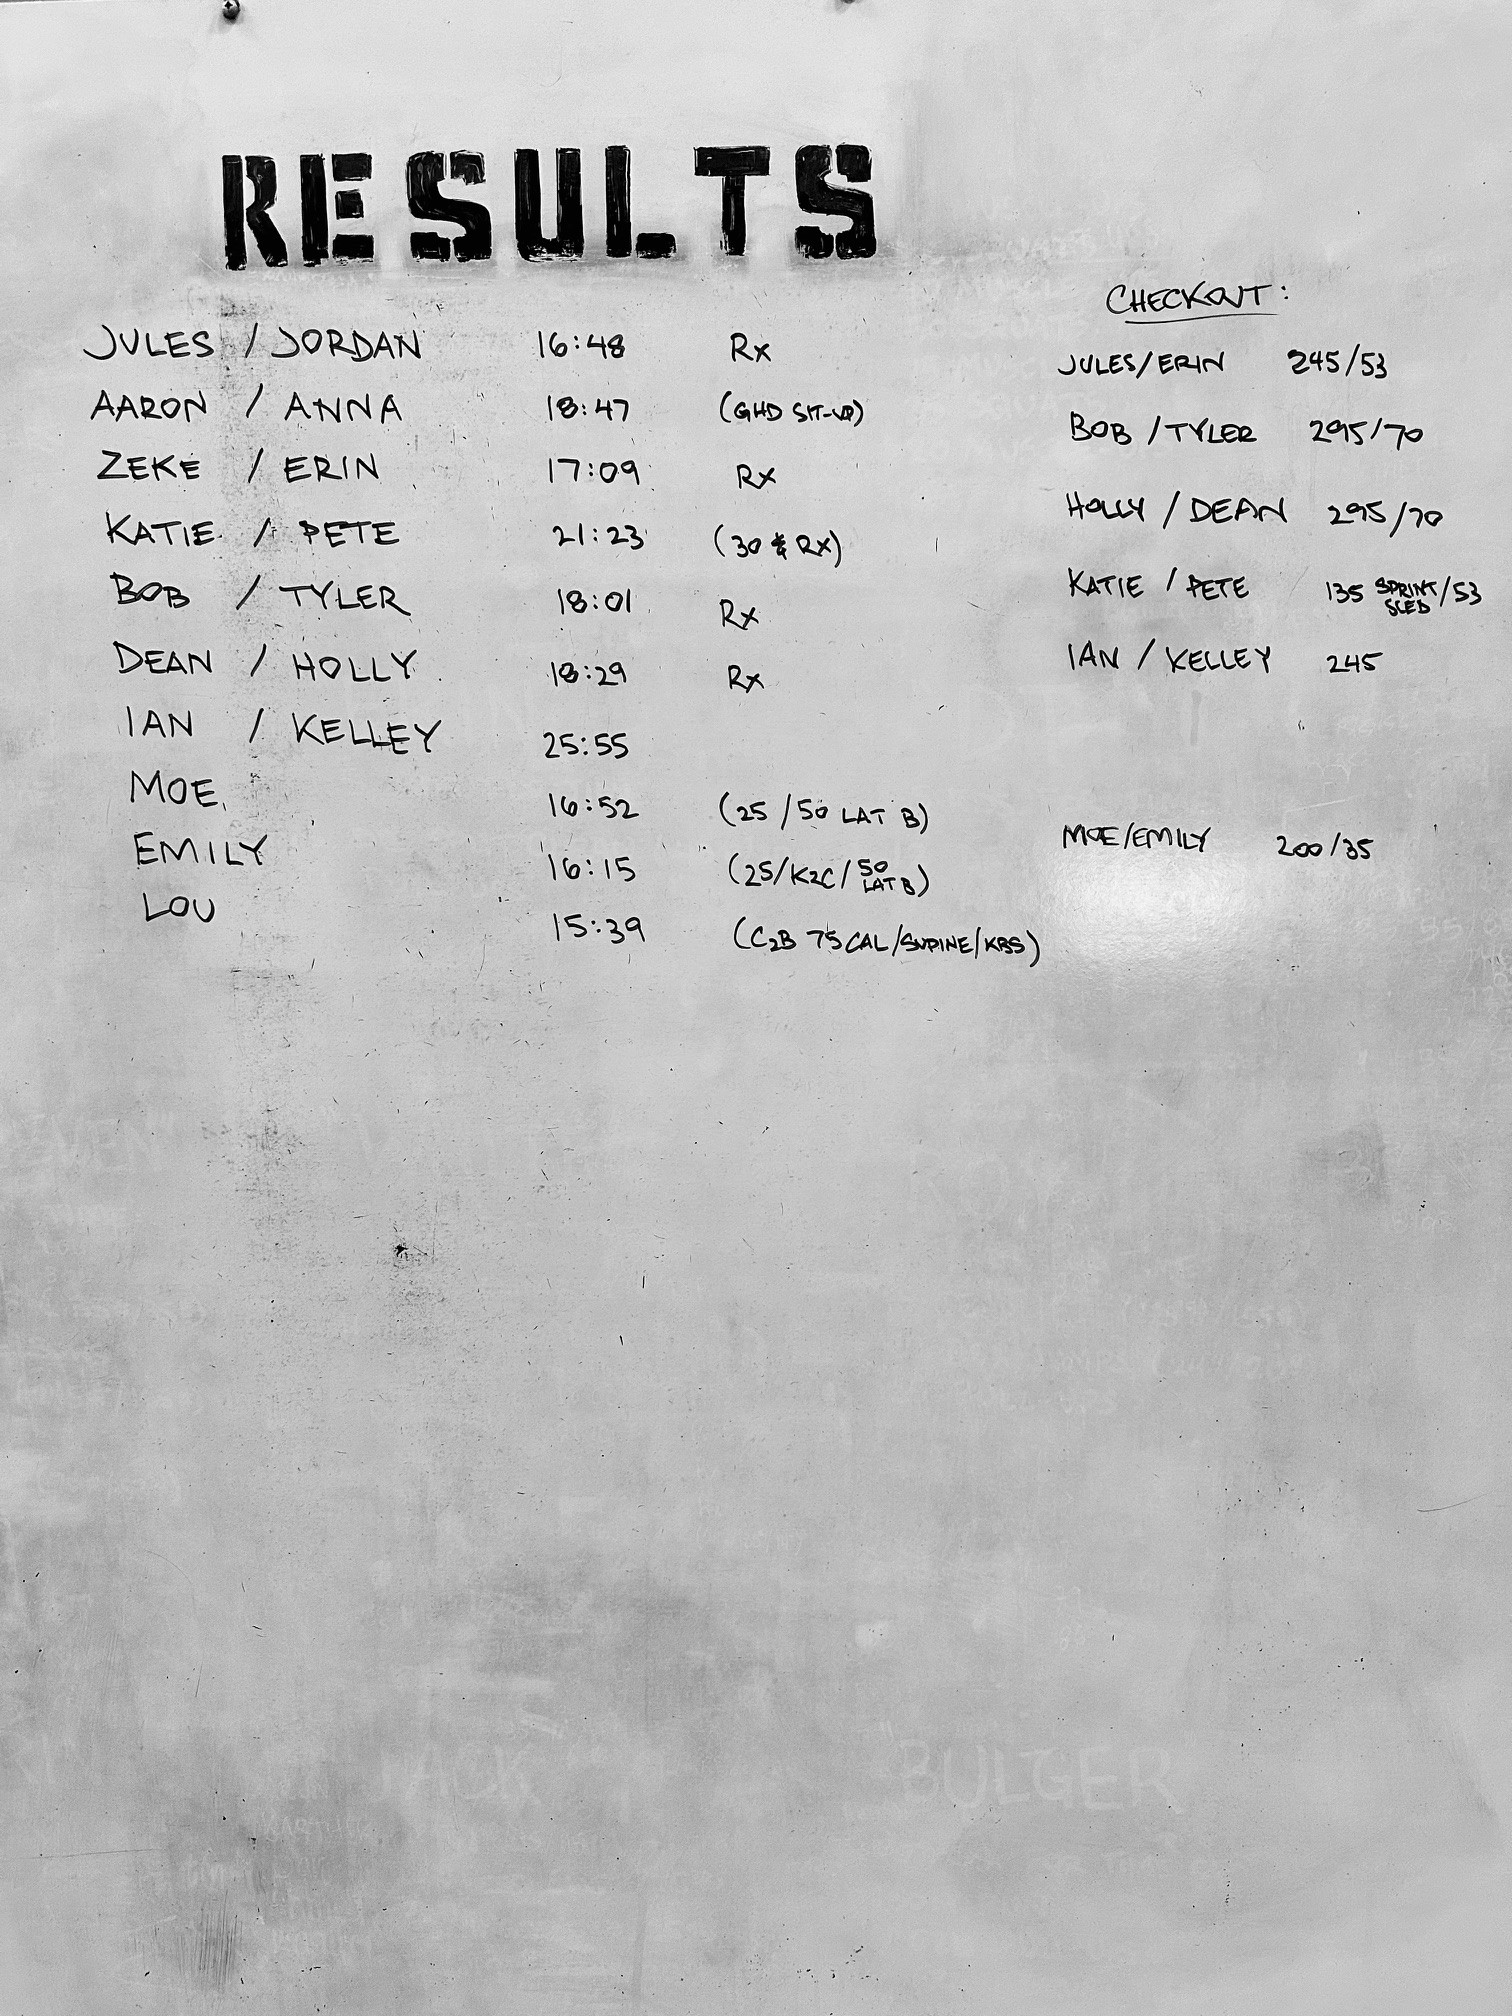 RESULTS
JULES / JORDAN 16:48 Rx
AARON / ANNA 18:47 (GHD SIT-UP)
ZEKE / ERIN 17:09 Rx
KATIE / PETE 21:23 (30 & RX)
BOB / TYLER 18:01 Rx
DEAN / HOLLY 18:29 Rx
IAN / KELLEY 25:55
MOE 16:52 (25 / 50 LAT B)
EMILY 16:15 (25/K2C/ 50 LAT B)
LOU 15:39 (C2B 75 CAL/SUPINE/KBS)
CHECKOUT:
JULES/ERIN 245/53
BOB / TYLER 295/70
HOLLY / DEAN 295/70
KATIE / PETE 135 SPRINT SLED /53
IAN / KELLEY 245
MOE/EMILY 200/35
BULGER